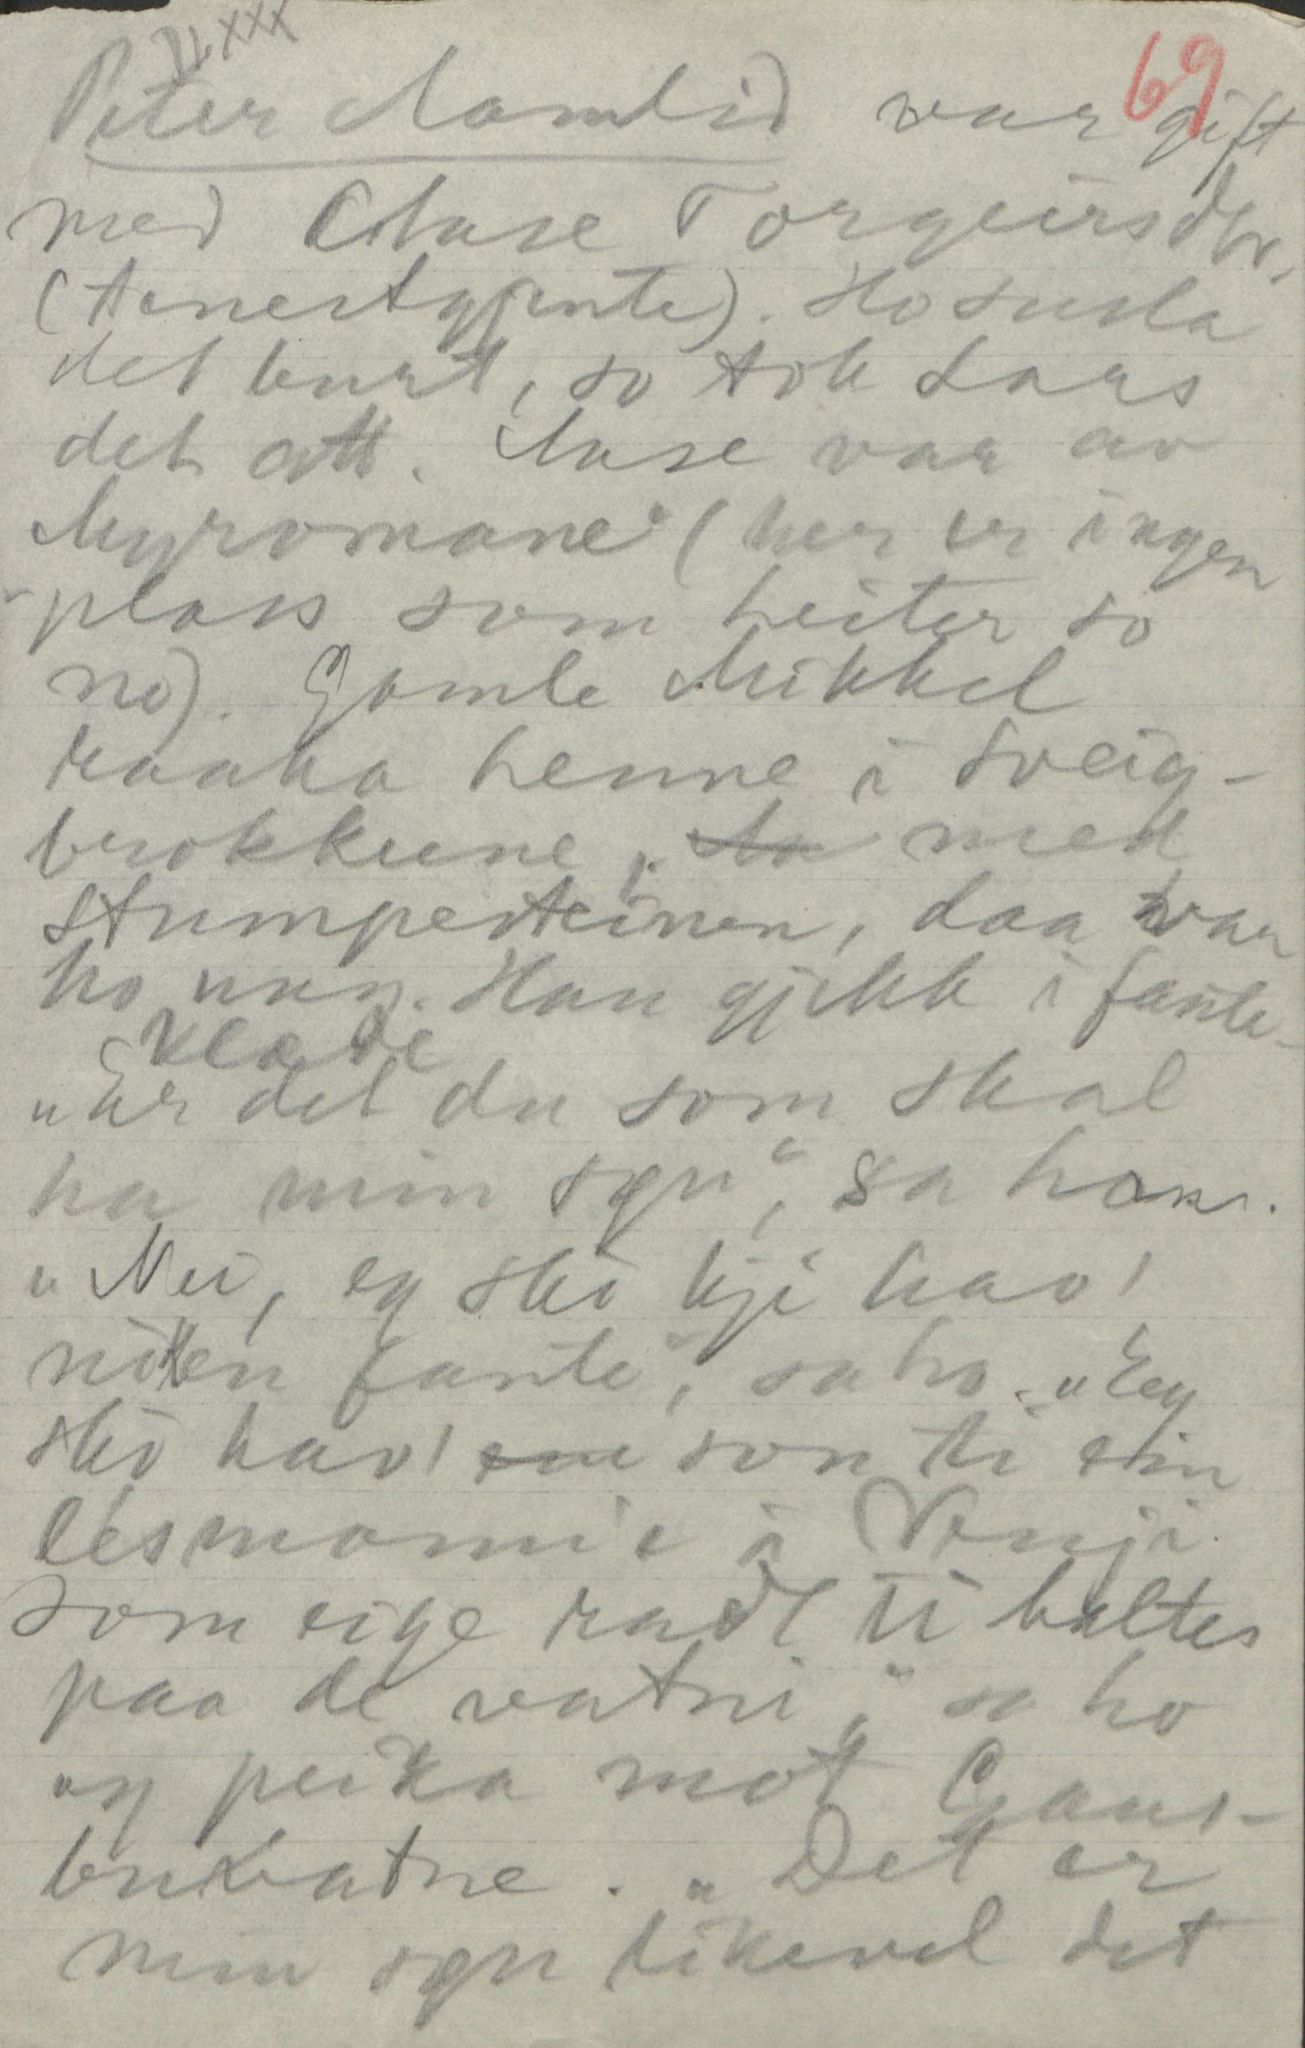 69
Peter Aamlid var gift
med Aase Torgeirsdtr.
(tenestgjente). Ho susla
det burt, so tok Lars
det att. Aase var av
Myromane (her er ingen
plass som heiter so
no). Gamle Mikkel
raaka henne i Sveig-
brokkune, med
stumpesteinen, daa var
ho ung. Han gjekk i fante-
klæde
"Er det du som skal
ha min søn", sa han.
"Nei, eg ski kji hav'
noken fante", sa ho. "Eg
ski hav' son ti ein
lesmannie i Vonji
som eige rudl ti baltes
paa de vatni," sa ho
og peika mot Gaus-
bukvatne. "Det er
min søn likevel det